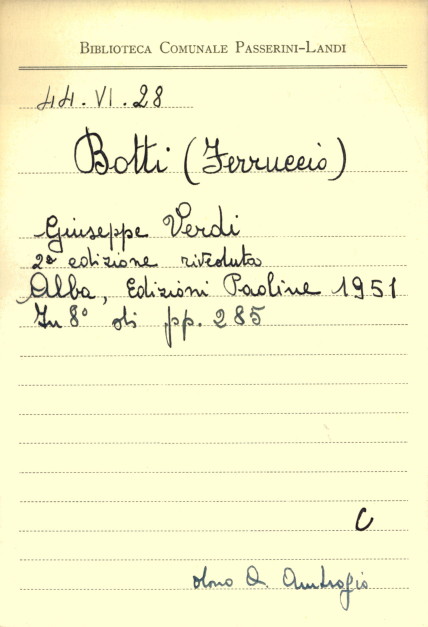 BIBLIOTECA COMUNALE PASSERINI-LANDI
44. VI. 28
Botti (Ferruccio)
Giuseppe Verdi
2ª edizione riveduta
Alba, Edizioni Paoline 1951
In 8° di pp. 285
C
dono A. Ambrogio